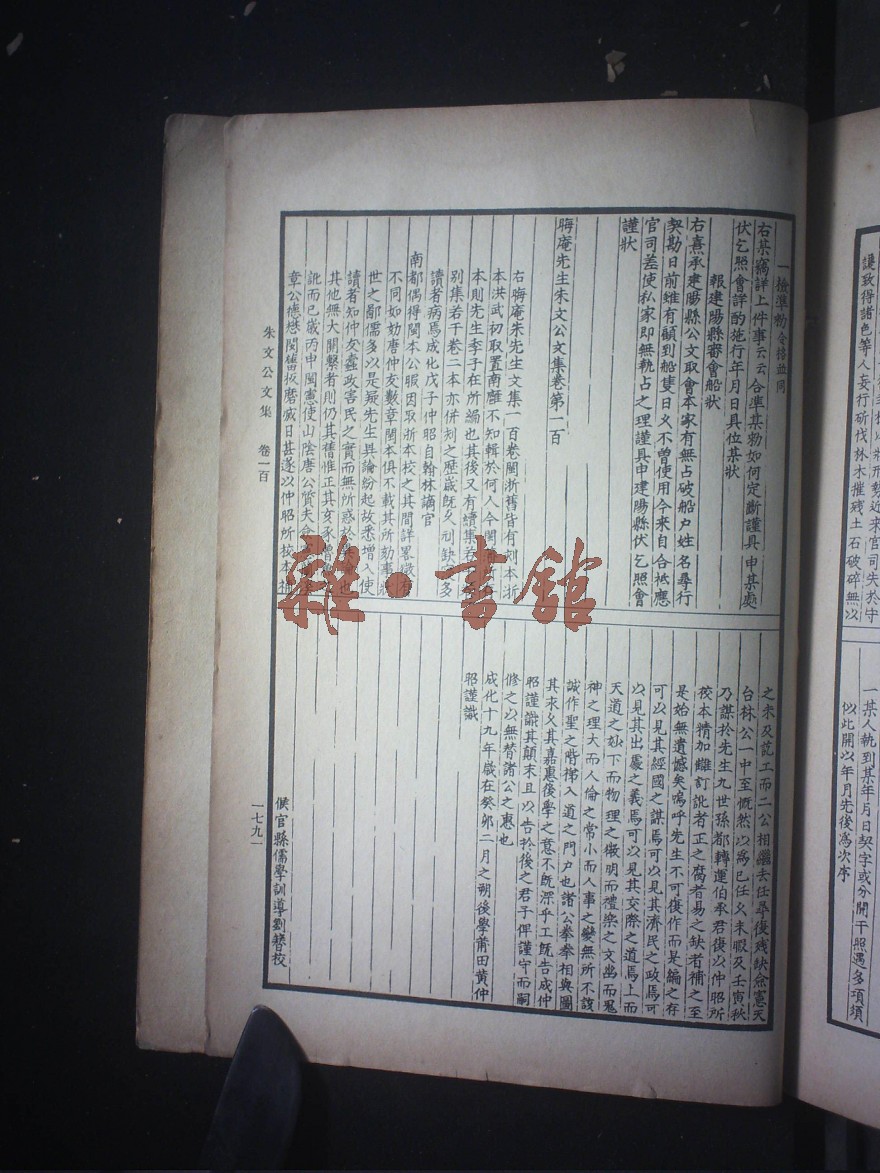 一檢準勑令格並同
右某竊詳上件事云云合準某勑如何定斷謹具申某處
伏乞照會詳酌施行年月日具位某狀
報建陽縣審會船狀
右熹承建陽縣公文取會本家有無占破船户姓名尋行
契勘日前雖有顧到船隻日久不曾使用今來自合祗應
官司差使私家即無執占之理謹具申建陽縣伏乞照會
謹狀
晦庵先生朱文公文集卷第一百
右晦庵朱先生文集一百卷閩浙舊皆有刻本浙
本洪武初取置南廱不知輯於何人今閩
本則先生季子在所編也其後又有續集若
别集若干卷二本亦併刻之歷歲既久刓缺多
讀者病焉成化戊子仲昭自翰林謫官
南都偶得閩本公暇因取浙本校之其間詳畧
不同如劾唐仲友數章閩本俱不載其所劾事狀
世之鄙儒多以是疑先生異論紛起故悉增入使
讀者知仲友蠹政害民之實而無所惑於 也
其他無大關繫者則仍其舊惟正其亥豕
訛而已歲丙申閩憲使山陰唐公質夫僉
章公懋懋閔舊板磨烕日甚遂以仲昭所校本補
朱文公文集 卷一百
之未及訖工而二公相繼去任尋復殘缺僉憲天
台林公一中至慨然以爲已任久未暇及壬寅秋
乃謀於先生九世孫都轉運伯承君復以仲昭所
校本精加讎訂訛者正之腐者易之缺者補之至
是始無遺憾矣嗚呼先生不可復作而是編之存
可以見其經國之謀焉可以見其濟民之政焉可
以見其出處之義焉可以見其交際之道焉上而
天道之玅下而物理之微明而禮樂之文幽而鬼
神之理大而人倫之常小而人事之變無所不該
誠作聖之階梯入道之門户也諸公拳拳相與圖
其永久其嘉惠後學之意不既深乎工既告成仲
昭謹識其顛末且以告於後之君子俾謹守而嗣
修之以無替諸公之惠也
成化十九年歲在癸卯二月之朔後學莆田黄仲
昭謹識
候官縣儒學訓導劉簪校
一七九一
讓致得諸色等人妄行斫伐林木摧殘土石破碎無以
形勢近來官司失於守
一某人執到某年月日契字或分開干照遇多項須
似此開以年月先後爲次序
雜·書館